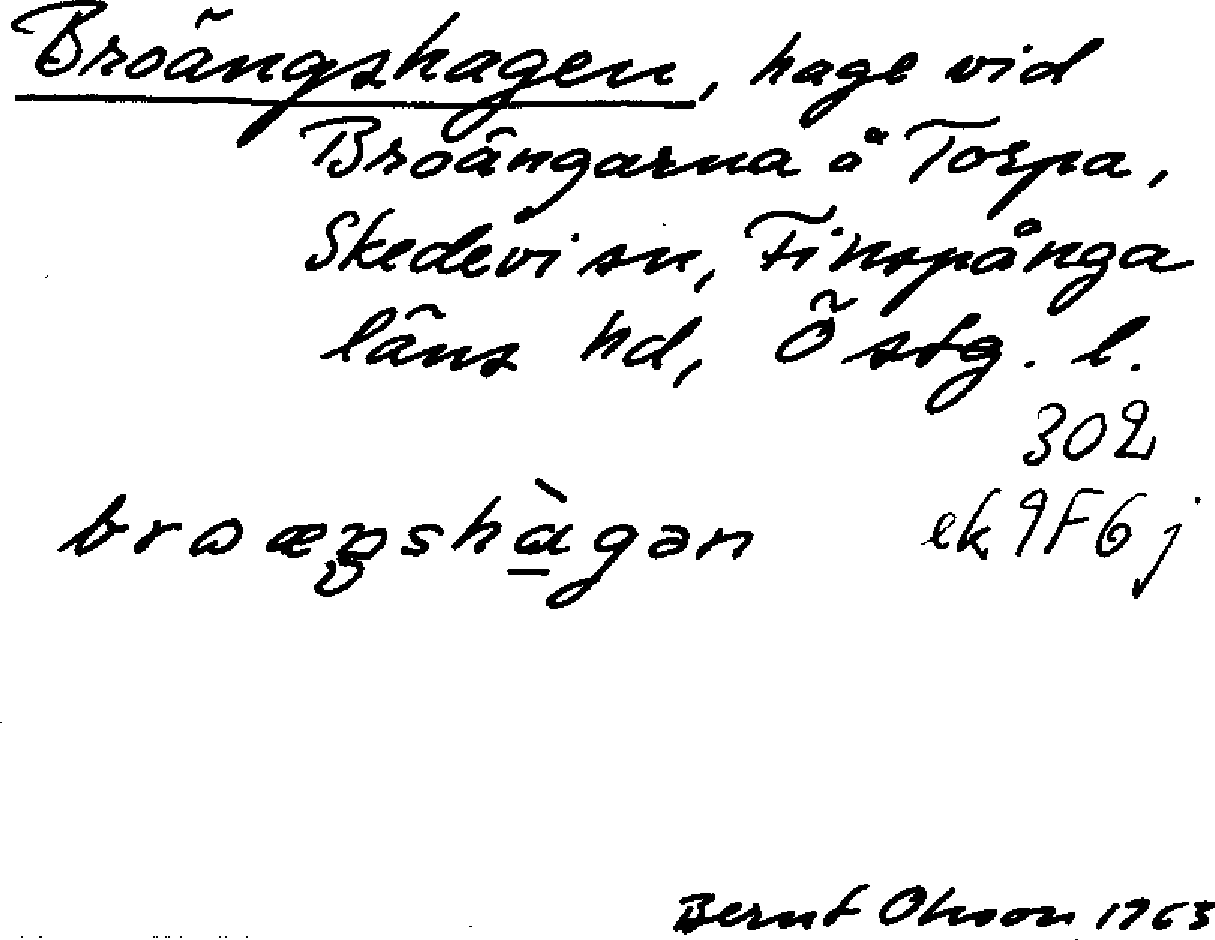 Broängshagen, hage vid
Broängarna å Torpa,
Skedevi sn, Finspånga
läns hd, Östg. l.
302
ek 9F6j
broæŋshàgən
Bernt Olsson 1963